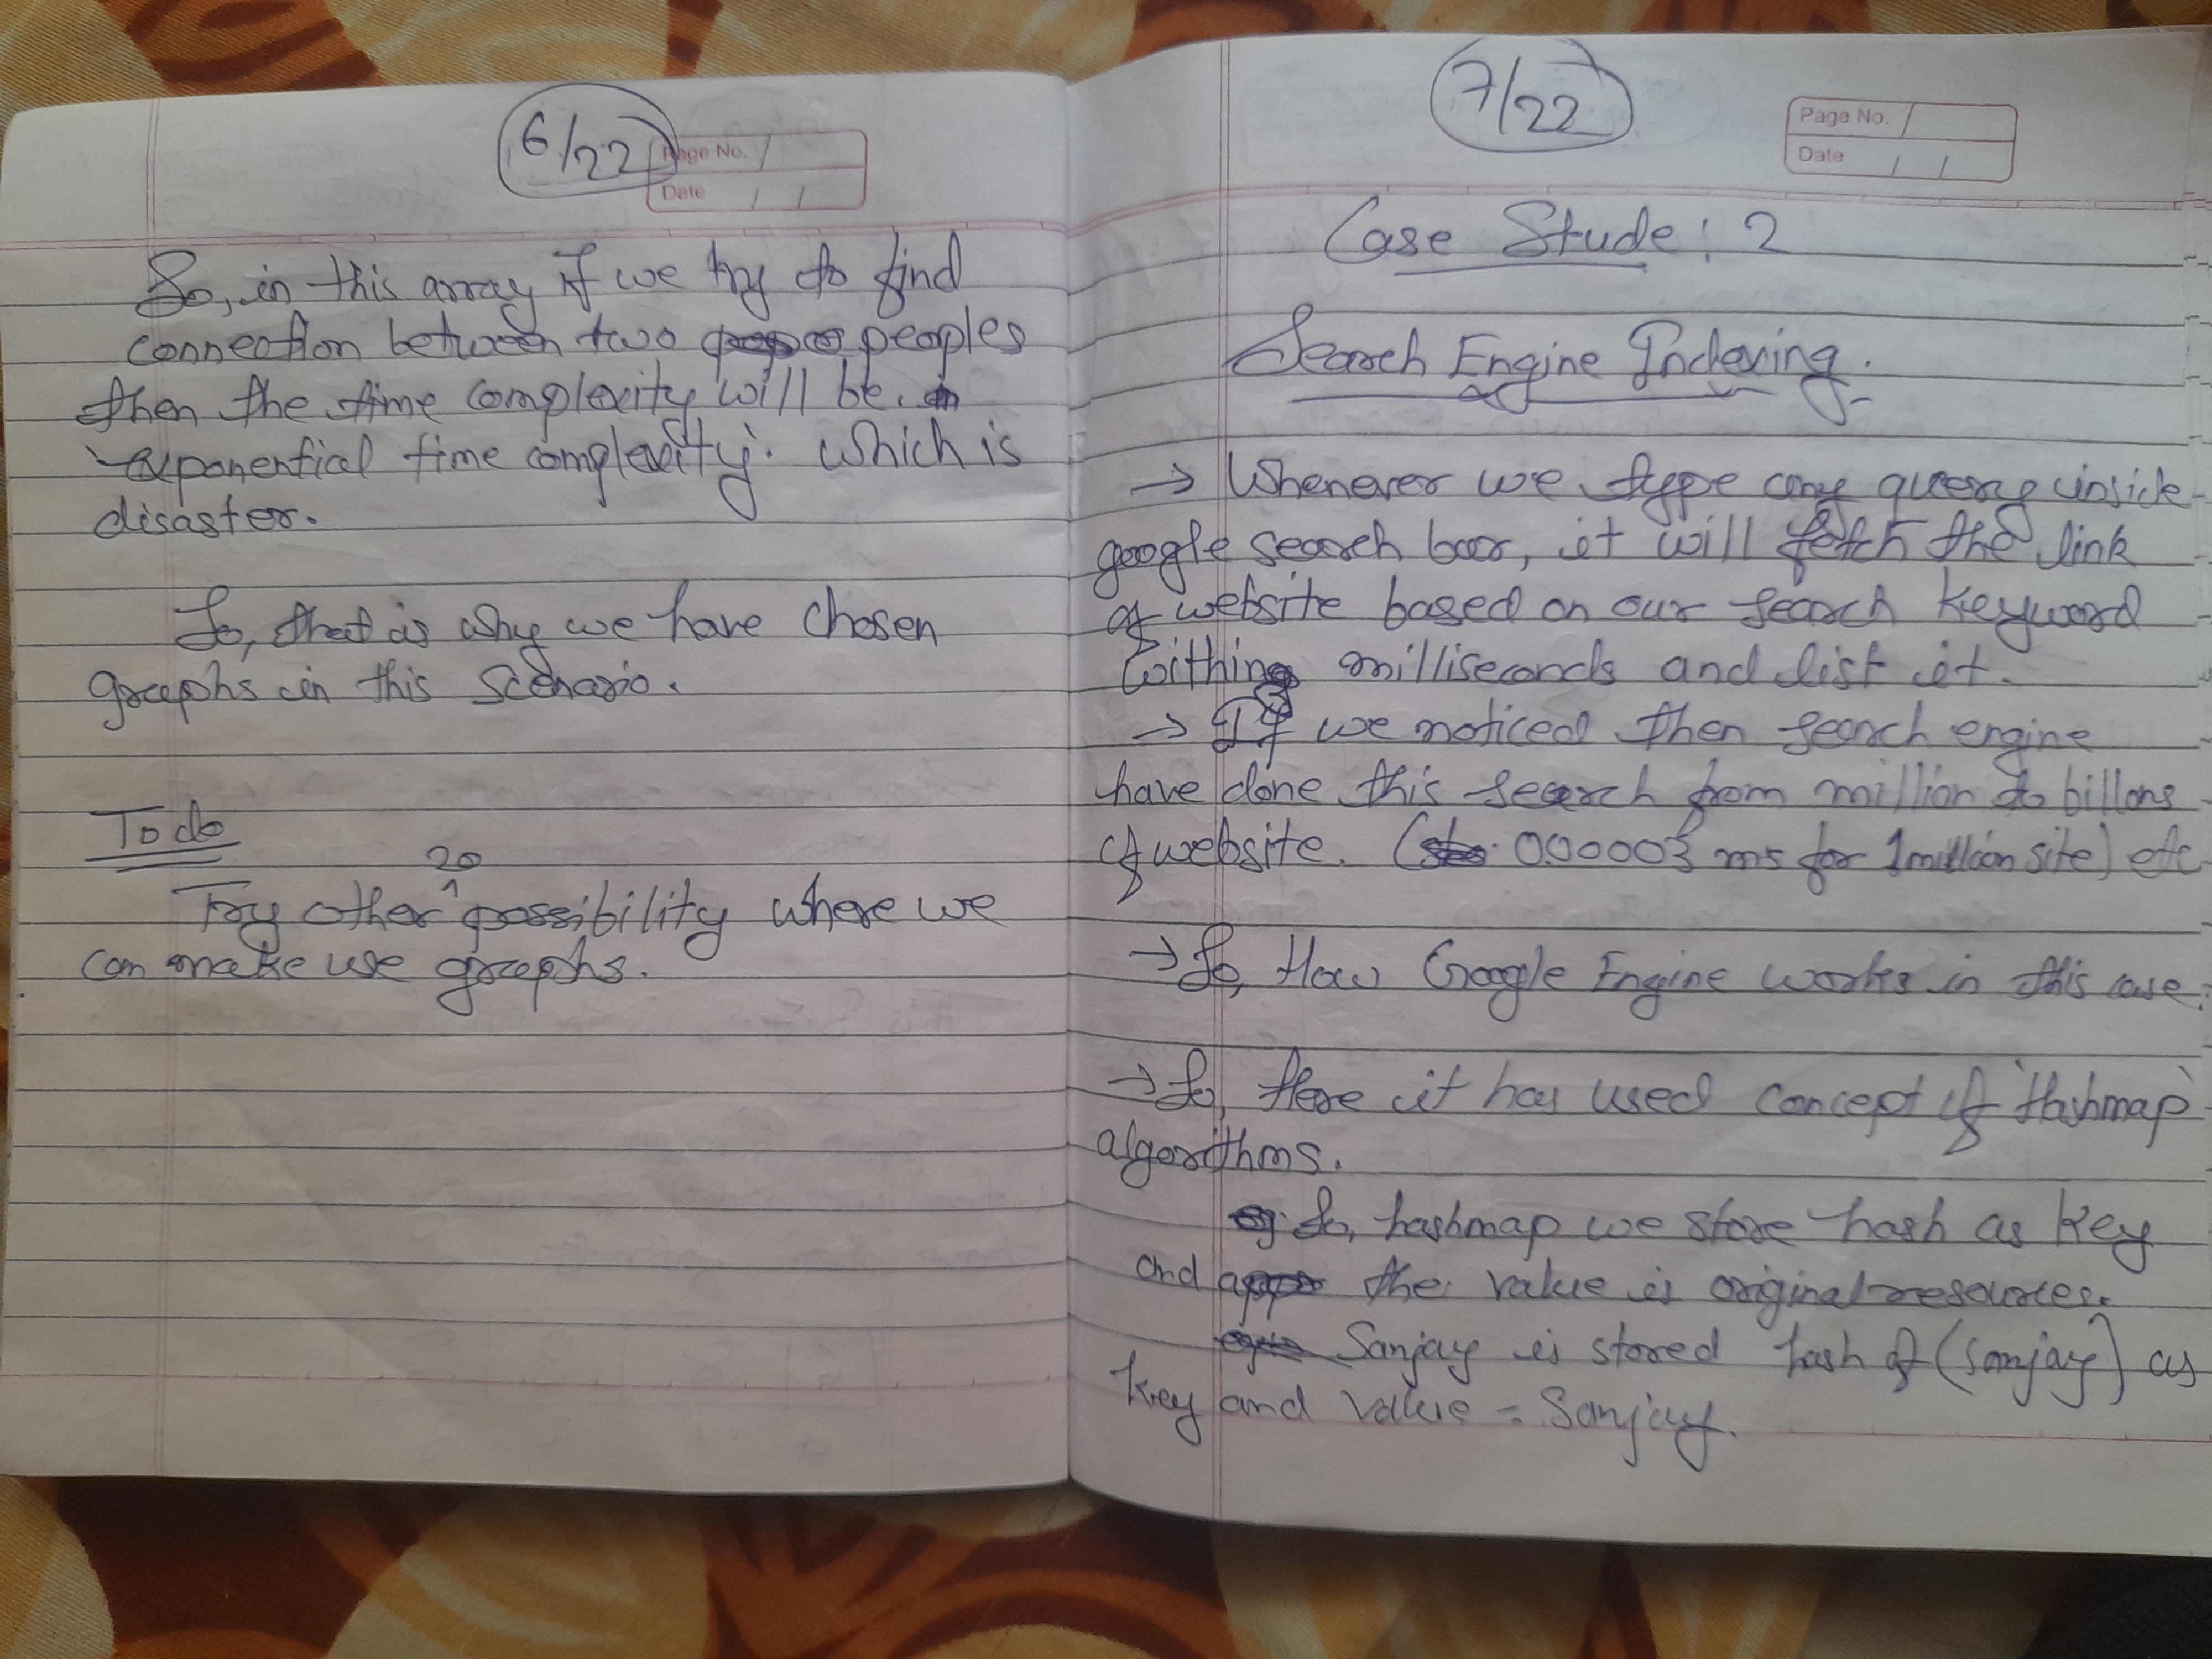 6/22
Page No.
Date / /
So, in this array if we try to find
connection between two peoples
then the time complexity will be,
exponential time complexity. Which is
disaster.
So, that is why we have chosen
graphs in this scenario.
To do
20
Try other possibility where we
can make use graphs.
7/22
Page No.
Date / /
Case Stude: 2
Search Engine Indexing:-
→ Whenever we type any query inside
google search bar, it will fetch the link
of website based on our search keyword
within milliseconds and list it.
→ If we noticed then search engine
have done this search from million to billions
of website. (0.00003 ms for 1million site) etc
→ So, How Google Engine works in this case.
→ So, Here it has used concept of Hashmap
algorithms.
So, hashmap we store hash as key
and the value is original resources.
Sanjay is stored hash of (Sanjay) as
key and value = Sanjay.